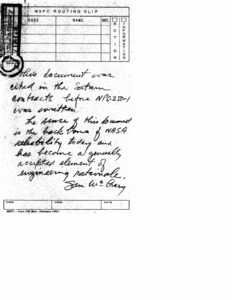 MSFC ROUTING SLIP
CODE NAME INIT.
ACTION
INFORMATION
This document was
cited in the Saturn
contracts before NPC 250-1
was written.
The sense of this document
is the back bone of NASA
reliability today and
has become a generally
accepted element of
engineering rationale.
CODE NAME DATE